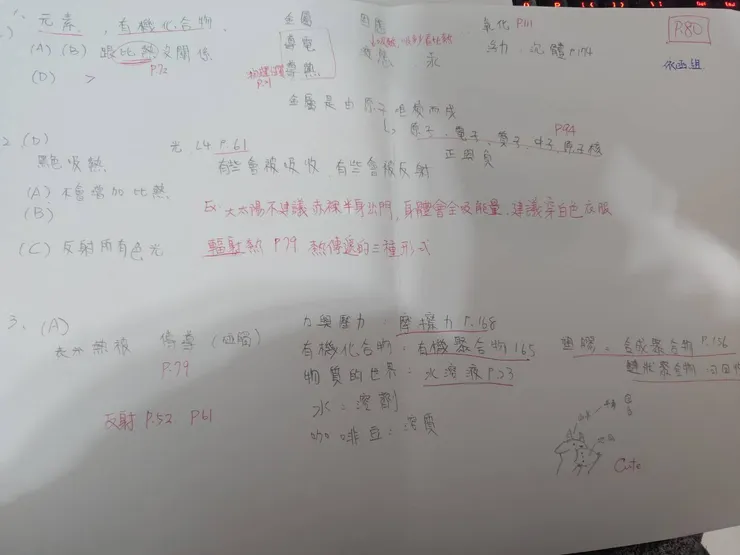 元素、有機化合物、
金屬
氧化 P.111
P.80
(A) (B) 跟比熱交關係
P.72
導電
導熱
汞
沉體 P.174
依函組
(D) >
金屬是由原子
P.94
原子、電子、質子、中子、原子核
正與負
2 (D)
黑色吸熱
光 L4 P.61
有些會被吸收、有些會被反射
(A) 不會增加比熱
(B)
Ex: 大太陽不建議赤裸半身出門,身體會全吸能量、建議穿白色衣服
(C) 反射所有色光
輻射熱 P.79 熱傳遞的三種形式
3、(A)
傳導 (金屬)
P.79
力與壓力:摩擦力 P.168
有機化合物:有機聚合物 165
塑膠、合成聚合物 P.136
物質的世界:水溶液 P.23
鏈狀聚合物
反射 P.52 P.61
水:溶劑
咖啡豆:溶質
Cute